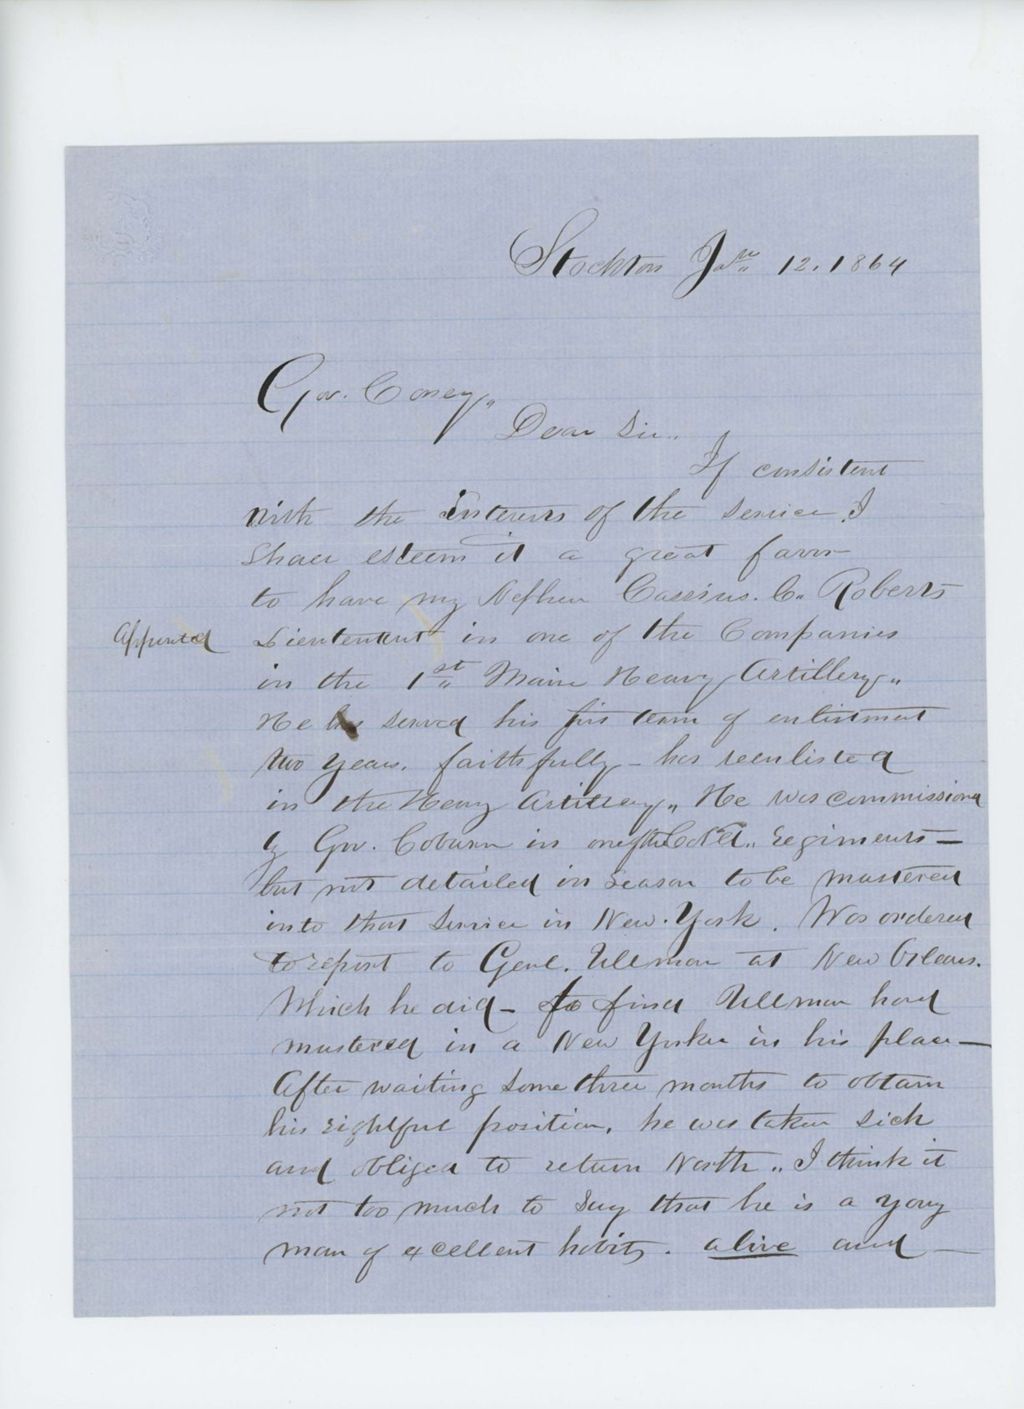 Stockton Jan 12. 1864
Gov. Coney,
Dear Sir,
If consistent
with the interests of the service, I
shall esteem it a great favor
to have my Nephew Cassius. C. Roberts
appointed Lieutentant in one of the Companies
in the 1st Maine Heavy Artillery,
He has served his first term of enlistment
two years. faithfully - has reenlisted
in the Heavy Artillery, He was commissiond
by Gov. Coburn in one of the Col'd regiments -
but not detailed in season to be mustered
into that service in New-York. Was ordered
to report to Genl. Ullman at New Orleans.
Which he did - to find Ullman had
mustered in a New Yorker in his place -
After waiting some three months to obtain
his rightful position, he was taken sick
and obliged to return North. I think it
not too much to say that he is a yong
man of excellent habits. alive and -